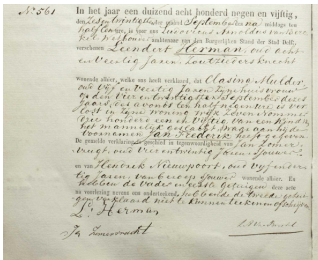 No 561
In het jaar een duizend acht honderd negen en vijftig,
den Zes en twintigsten der maand September des na middags ten
half Een ure, is voor ons Ludovicus Arnoldus van
ambtenaar van den Burgerlijken Stand der Stad Delft,
verschenen Leendert Herman, oud acht
en Veertig Jaren, Zoutziedersknecht
Wonende alhier, welke ons heeft verklaard, dat Clasina Mulder,
oud Vijf en Veertig Jaren, zijn huisvrouw
op den Vier en twintigsten September dezes
jaars, des avonds ten half negen ure, is bevallen
in zijne woning wijk Zeven nommer
honderd en Vijftig, van een Kind van
het mannelijk geslacht, hetwelk hij de
voornamen Jan Frederik heeft gegeven
De gemelde verklaring is geschied in tegenwoordigheid van Jan Zomer-
vrugt, oud Vier en twintig Jaren, Sjouwer
en van Hendrik Nieuwpoort, oud Vijf en der-
tig Jaren, van beroep Sjouwer wonende alhier. En
hebben de vader en eerste getuigen deze acte
na voorlezing nevens ons onderteekend, hebbende de tweede getui-
gen verklaard niet te kunnen teekenen of schrijven
L. Herman
Jan Zomervrucht